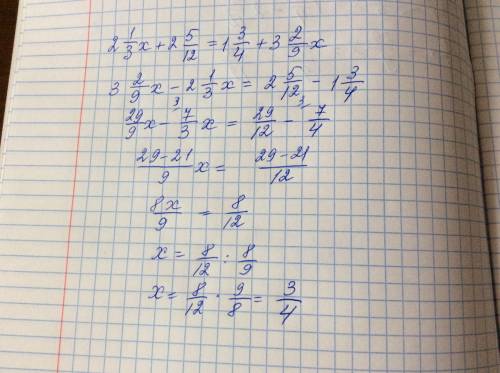 2 1/3 x + 2 5/12 = 1 3/4 + 3 2/9 x
3 2/9 x - 2 1/3 x = 2 5/12 - 1 3/4
29/9 x - 7/3 ³ x = 29/12 - 7/4 ³
29-21/9 x = 29-21/12
8x/9 = 8/12
x = 8/12 : 8/9
x = 8/12 · 9/8 = 3/4